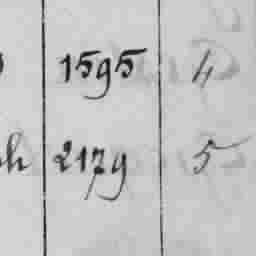 1595 4
2179 5